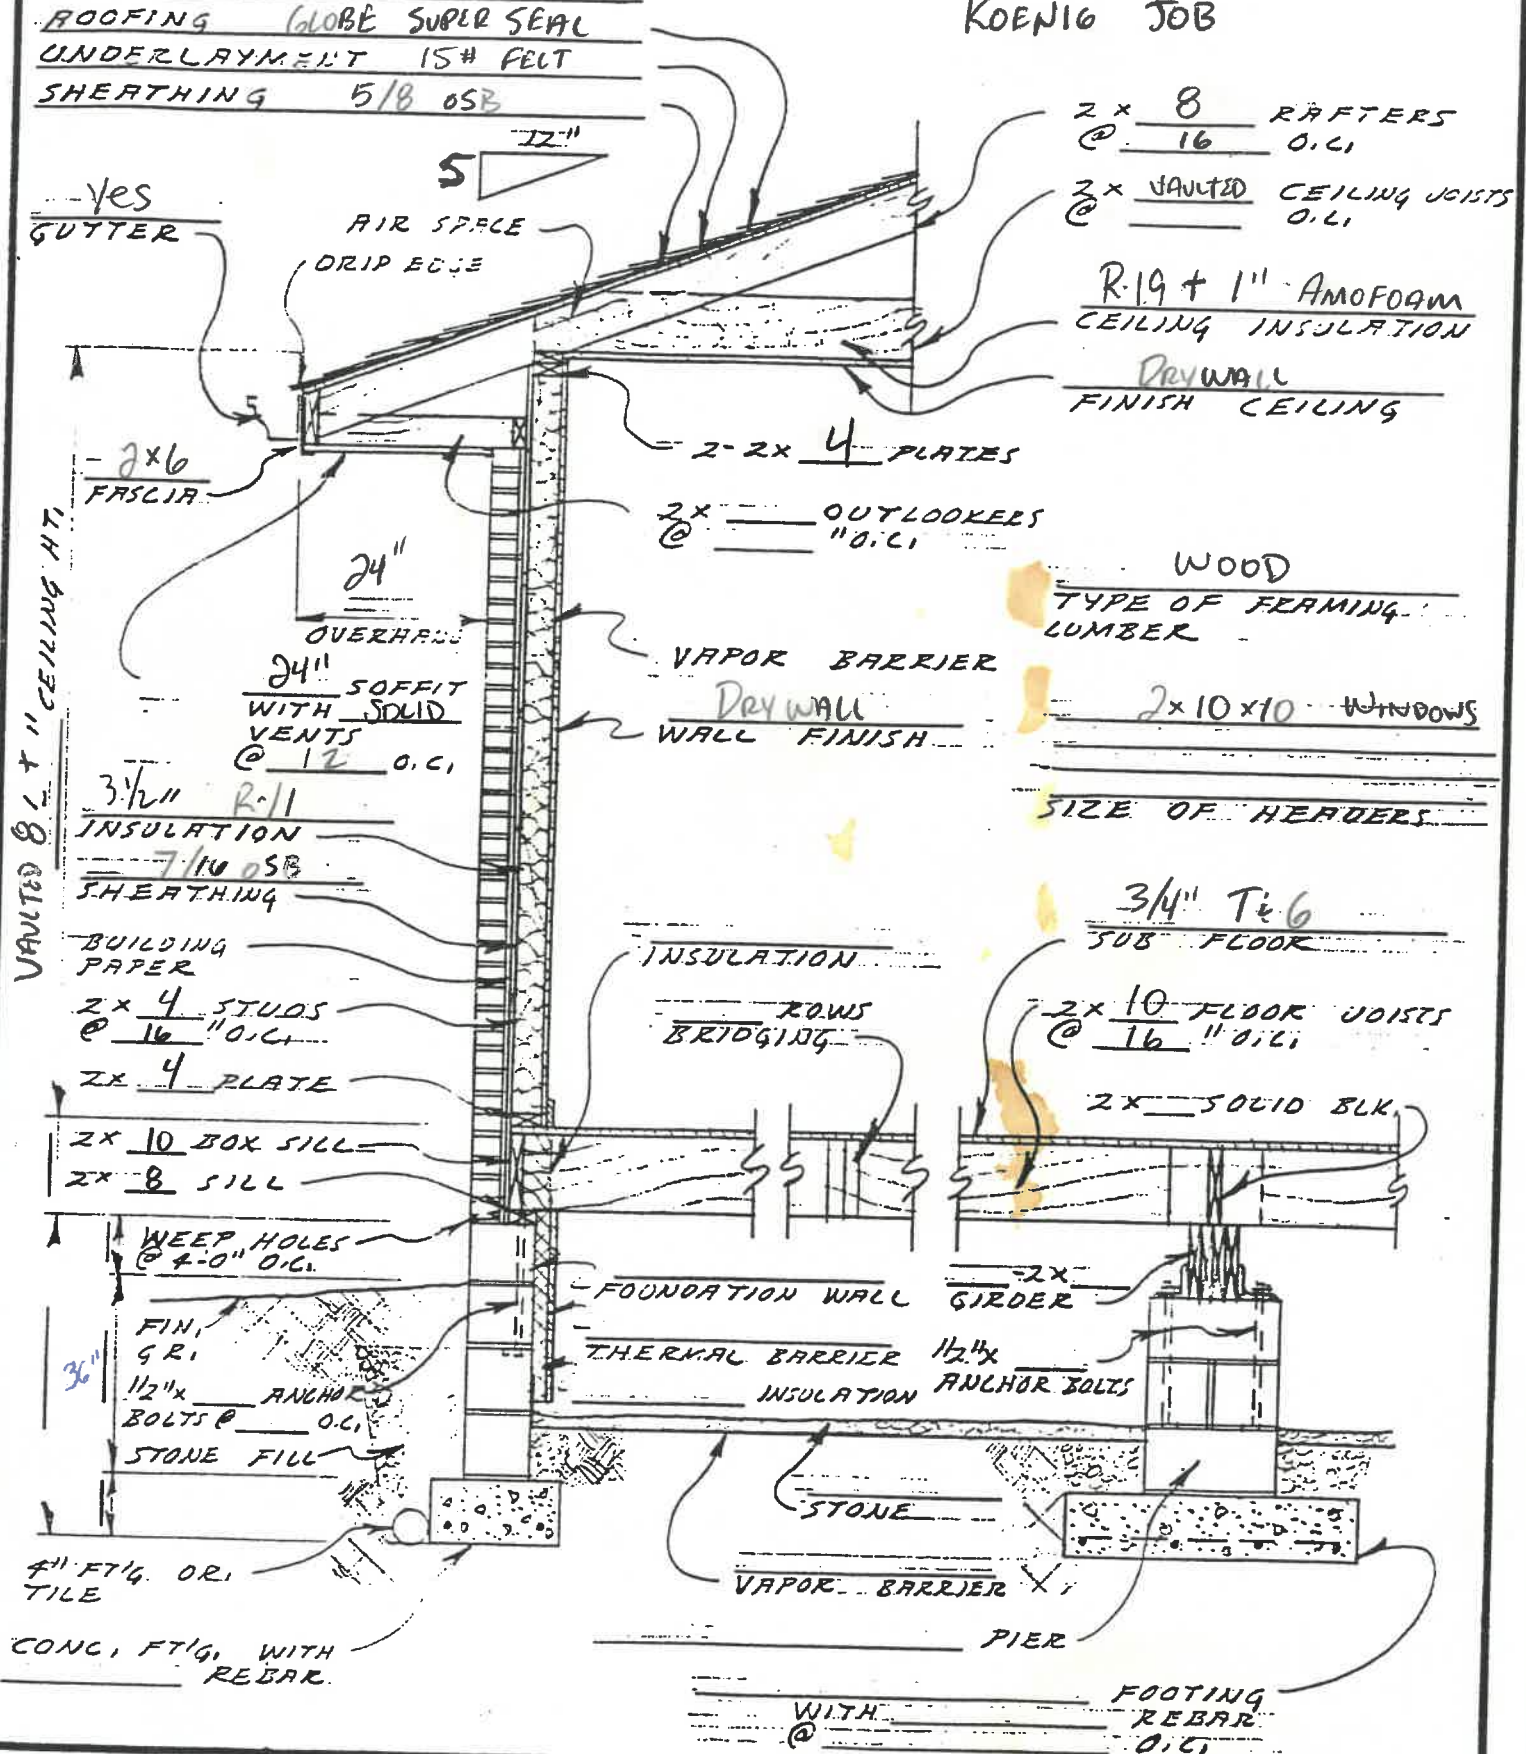 KOENIG JOB
ROOFING GLOBE SUPER SEAL
UNDERLAYMENT 15# FELT
SHEATHING 5/8 OSB
12"
5
Yes
GUTTER
AIR SPACE
DRIP EDGE
2 x 8 RAFTERS
@ 16 O.C.
2 x VAULTED CEILING JOISTS
@ O.C.
R-19 + 1" AMOFOAM
CEILING INSULATION
DRYWALL
FINISH CEILING
5
2x6
FASCIA
2-2x 4 PLATES
2x OUTLOOKERS
@ "O.C.
24"
OVERHANG
24" SOFFIT
WITH SOLID
VENTS
@ 12 O.C.
VAULTED 8'+ " CEILING HT.
VAPOR BARRIER
DRYWALL
WALL FINISH
WOOD
TYPE OF FRAMING
LUMBER
2x10x10 WINDOWS
SIZE OF HEADERS
3 1/2" R-11
INSULATION
7/16 OSB
SHEATHING
BUILDING
PAPER
2x 4 STUDS
@ 16 "O.C.
2x 4 PLATE
2x 10 BOX SILL
2x 8 SILL
INSULATION
ROWS
BRIDGING
3/4" T&G
SUB FLOOR
2x 10 FLOOR JOISTS
@ 16 "O.C.
2x SOLID BLK.
WEEP HOLES
@ 4-0" O.C.
FIN.
GR.
36"
1/2"x ANCHOR
BOLTS @ O.C.
STONE FILL
FOUNDATION WALL
THERMAL BARRIER
INSULATION
-2x
GIRDER
1/2"x
ANCHOR BOLTS
STONE
VAPOR BARRIER
4" FT'G. DR.
TILE
CONC. FT'G. WITH
REBAR.
PIER
FOOTING
WITH REBAR
@ O.C.